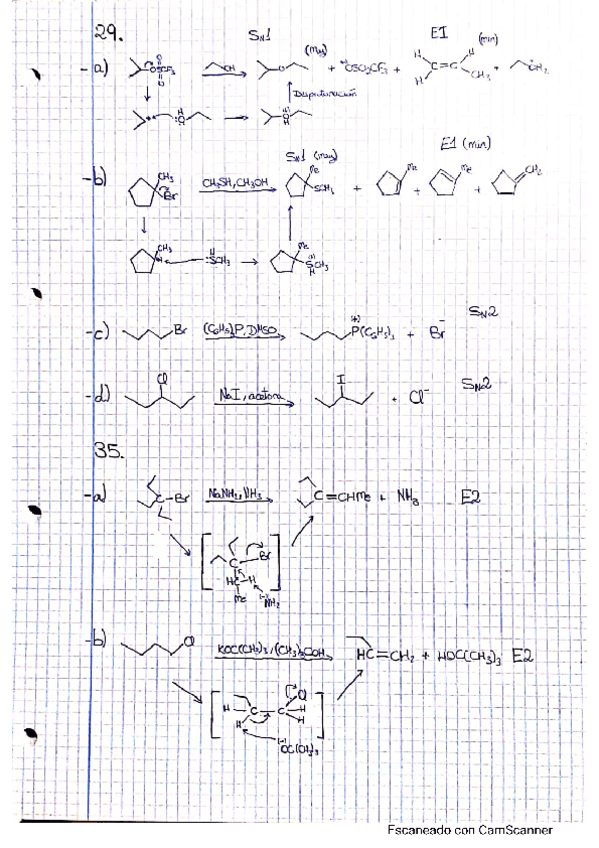 29.
SN1 E1
-a) OSCF₃ OH (May) + ⁽⁻⁾OSO₂CF₃ + H H C=C H CH₃ (min) + OH₂
Desprotonación
SN1 (may) E1 (min)
-b) CH₃ Br CH₃SH, CH₃OH Me SCH₃ + Me + Me + CH₂
CH₃ :SCH₃ H Me SCH₃ H
-c) Br (C₆H₅)₃P, DMSO P(C₆H₅)₃ + Br⁻ SN2
-d) Cl NaI, acetona I + Cl⁻ SN2
35.
-a) C-Br NaNH₂, NH₃ C=CHMe + NH₃ E2
C Br
HC H
Me NH₂
-b) Cl KOC(CH₃)₃, (CH₃)₃COH HC=CH₂ + HOC(CH₃)₃ E2
Cl
H C C H
H H
OC(CH₃)₃
Escaneado con CamScanner